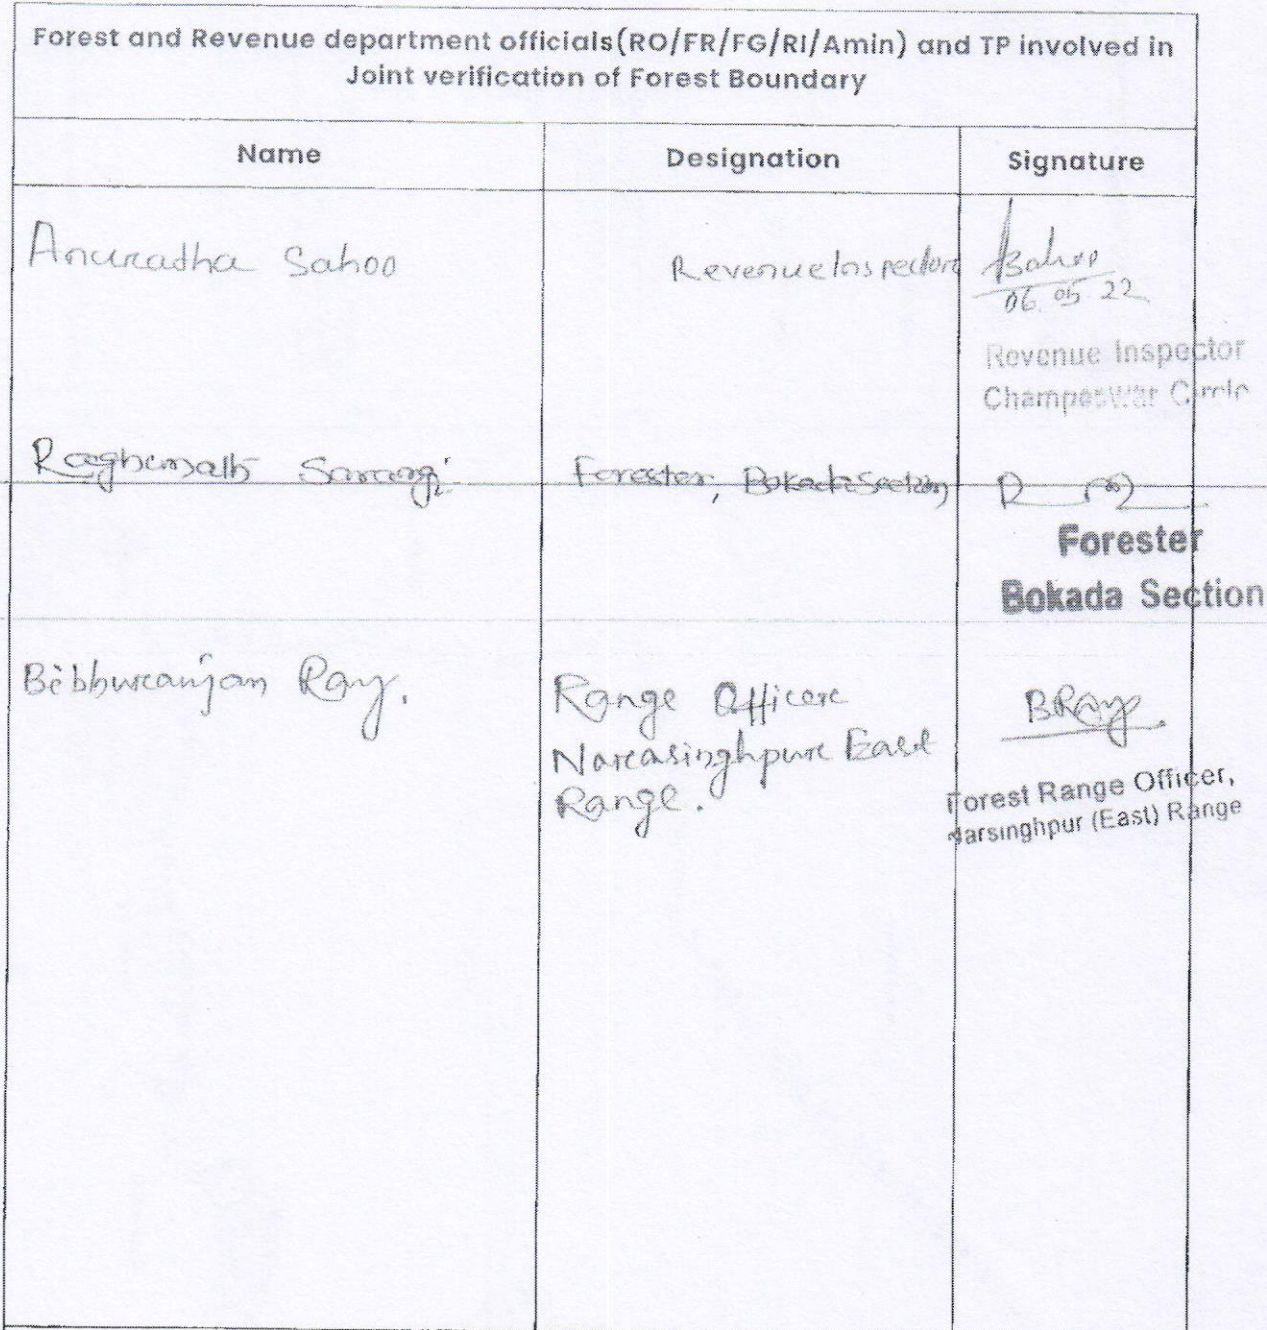 Forest and Revenue department officials(RO/FR/FG/RI/Amin) and TP involved in
Joint verification of Forest Boundary
Name Designation Signature
Anuradha Sahoo Revenue Inspector
06.05 22
Revenue Inspector
Champeswar Circle
Raghunath Sarangi Forester, Bokada Section
Forester
Bokada Section
Bibhuranjan Ray. Range Officer BRay
Narasinghpur East
Range.
Forest Range Officer,
Narsinghpur (East) Range